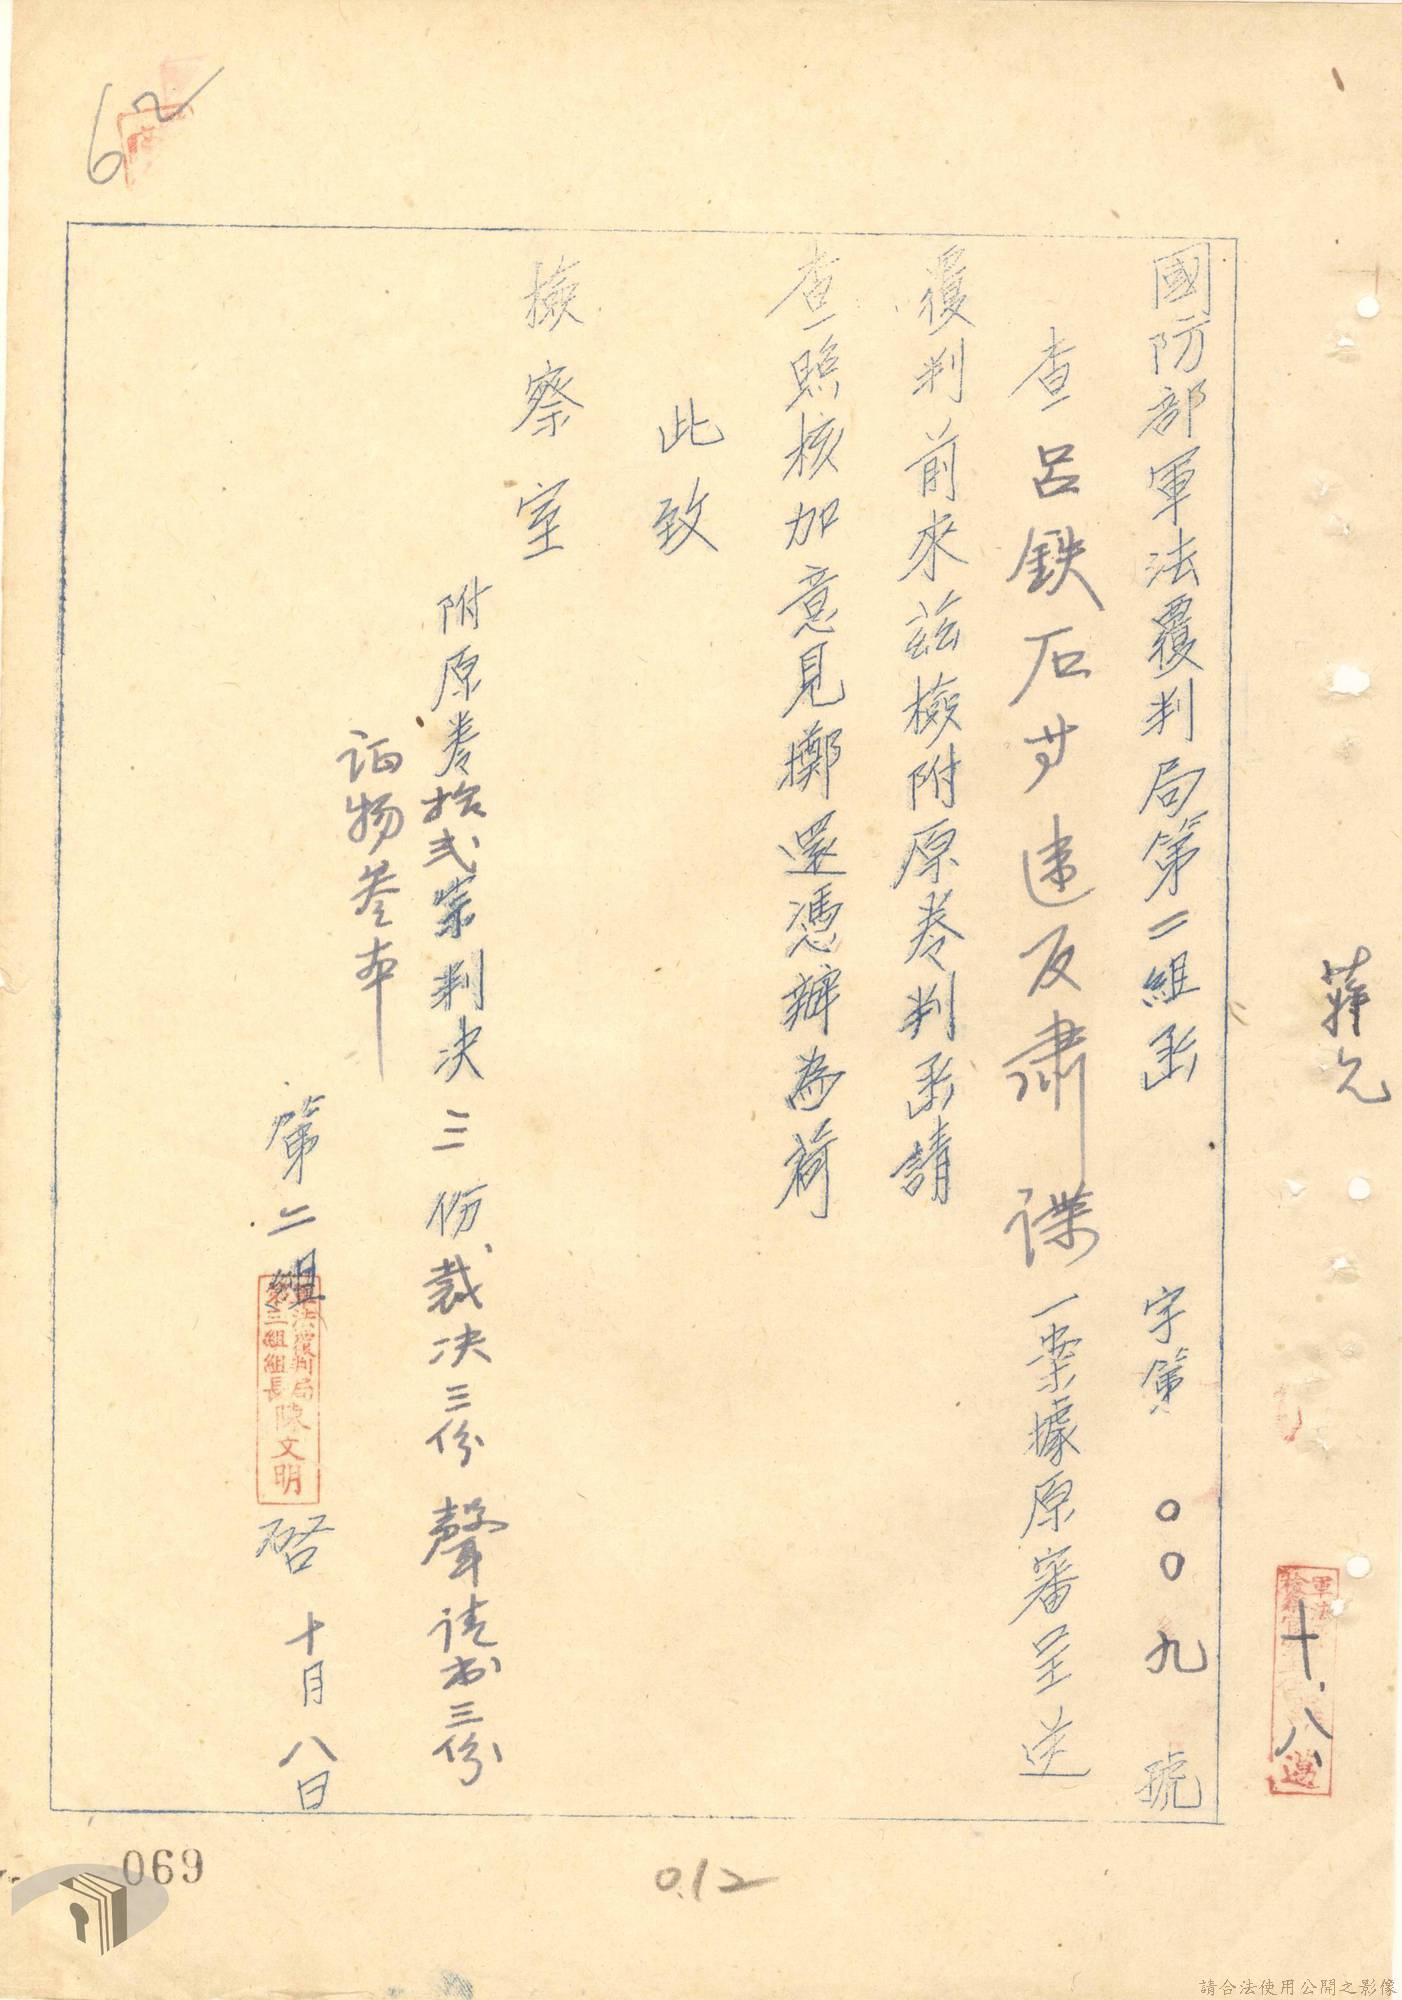 國防部軍法覆判局第二組函 字第〇〇九號
查呂鉄石廿違反肅諜一案據原審呈送
覆判前來茲檢附原卷判函請
查照核加意見擲還憑辦為荷
此致
檢察室
附原卷拾弍宗判决三份裁决三份聲请书三份
证物叁本
第二組
軍法覆判局第三組組長陳文明
啓 十月八日
十.八
62
069
012
請合法使用公開之影像